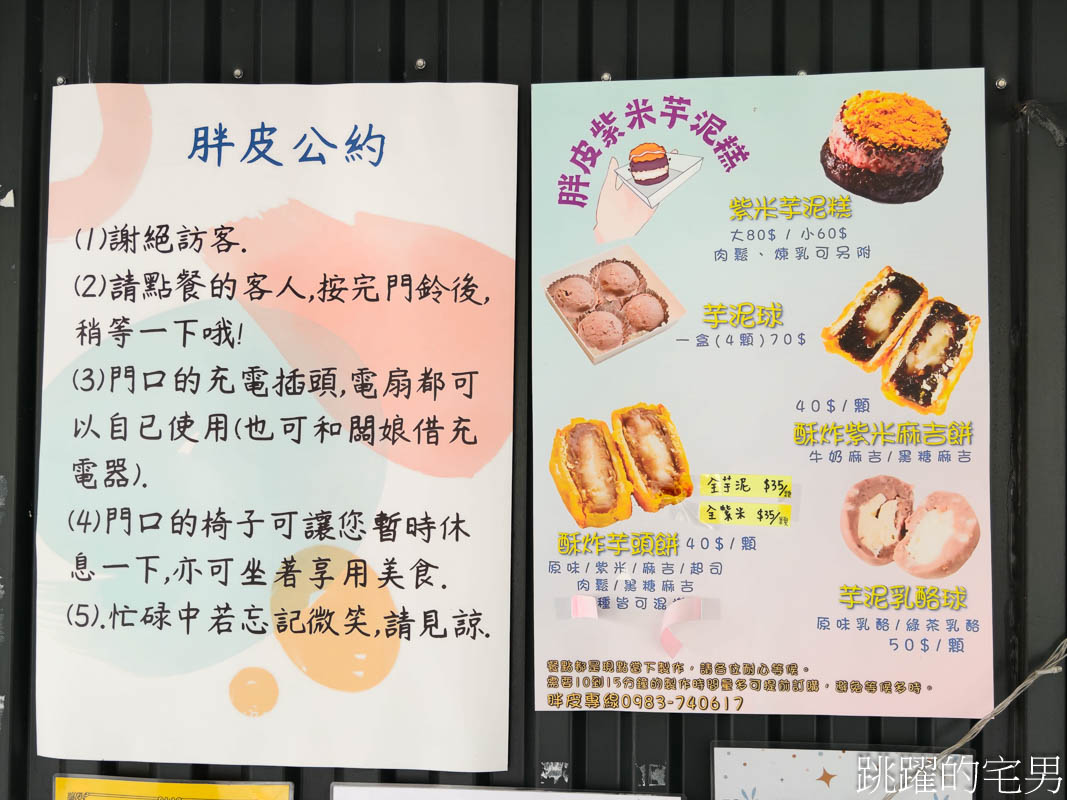 胖皮公約
(1)謝絕訪客.
(2)請點餐的客人,按完門鈴後,
稍等一下哦!
(3)門口的充電插頭,電扇都可
以自己使用(也可和闆娘借充
電器).
(4)門口的椅子可讓您暫時休
息一下,亦可坐著享用美食.
(5).忙碌中若忘記微笑,請見諒.
胖皮紫米芋泥糕
紫米芋泥糕
大80$/小60$
肉鬆、煉乳可另附
芋泥球
一盒(4顆)70$
40$/顆
酥炸紫米麻吉餅
牛奶麻吉/黑糖麻吉
全芋泥 $35/顆
全紫米 $35/顆
酥炸芋頭餅 40$/顆
原味/紫米/麻吉/起司
肉鬆/黑糖麻吉
種皆可混
芋泥乳酪球
原味乳酪/綠茶乳酪
50$/顆
餐點都是現點當下製作，請各位耐心等候。
需要10到15分鐘的製作時間量多可提前訂購，避免等候多時。
胖皮專線0983-740617
跳躍的宅男